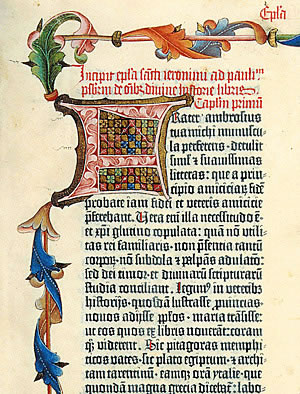 Epła
Incipit epła sancti ieronimi ad paulinū
p̄sbiterū de oībus divine historie libris.
Capłm primū
Frater ambrosius
tua michi munuscula
perferens. detulit
simul et suavissimas
litteras: que a prin-
cipio amiciciaꝝ fidē
probate iam fidei et veteris amicicie
preferebant. Uera eni illa necessitudo ē
et xp̄i glutino copulata: quā nō utili-
tas rei familiaris. nō p̄sentia tantū
corpoꝝ. nō subdola et palpās adulatō.
sed dei timor. et divinaꝝ scripturarū
studia conciliant. Legim⁹ in veteribꝫ
historijs. quosdā lustrasse. puincias.
novos adijsse pp̄los. maria trāsisse.
ut eos quos ex libris noverant: coram
qꝫ viderent. Sic pitagoras memphi-
ticos vates. sic plato egiptum. et archi-
tam tarentinū. eamqꝫ orā ytalie. que
quondā magna grecia dicebat̄: labo-